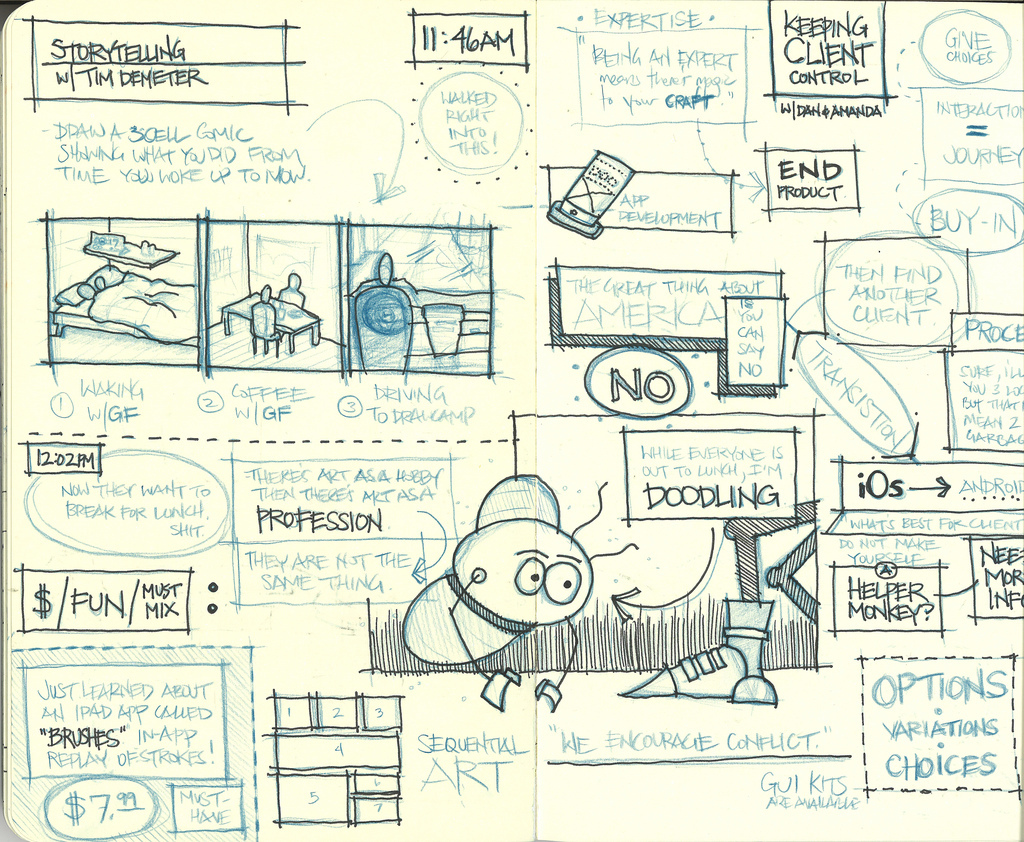 STORYTELLING
W/ TIM DEMETER
11:46AM
WALKED
RIGHT
INTO
THIS!
- DRAW A 3 CELL COMIC
SHOWING WHAT YOU DID FROM
TIME YOU WOKE UP TO NOW.
1 WAKING
W/GF
2 COFFEE
W/GF
3 DRIVING
TO DRAWCAMP
12:02PM
NOW THEY WANT TO
BREAK FOR LUNCH.
SHIT.
- THERE'S ART AS A HOBBY
THEN THERE'S ART AS A
PROFESSION
THEY ARE NOT THE
SAME THING.
$/FUN/MUST
MIX
JUST LEARNED ABOUT
AN IPAD APP CALLED
"BRUSHES" IN-APP
REPLAY OF STROKES!
$7.99
MUST-
HAVE
1 2 3
4
5 6
7
SEQUENTIAL
ART
• EXPERTISE •
"BEING AN EXPERT
means there magic
to your CRAFT."
KEEPING
CLIENT
CONTROL
W/DAN & AMANDA
GIVE
CHOICES
INTERACTION
=
JOURNEY
BUY-IN
END
PRODUCT
APP
DEVELOPMENT
THE GREAT THING ABOUT
AMERICA
IS
YOU
CAN
SAY
NO
NO
THEN FIND
ANOTHER
CLIENT
TRANCISTION
PROCE
SURE, I LL
YOU 3 LOG
BUT THAT
MEAN 2
GARBAG
WHILE EVERYONE IS
OUT TO LUNCH, I'M
DOODLING
iOs → ANDROID
WHAT'S BEST FOR CLIENT
DO NOT MAKE
YOURSELF
A
HELPER
MONKEY?
NEE
MOR
INFO
OPTIONS
•
VARIATIONS
•
CHOICES
"WE ENCOURAGE CONFLICT."
GUI KITS
ARE AVAILABLE